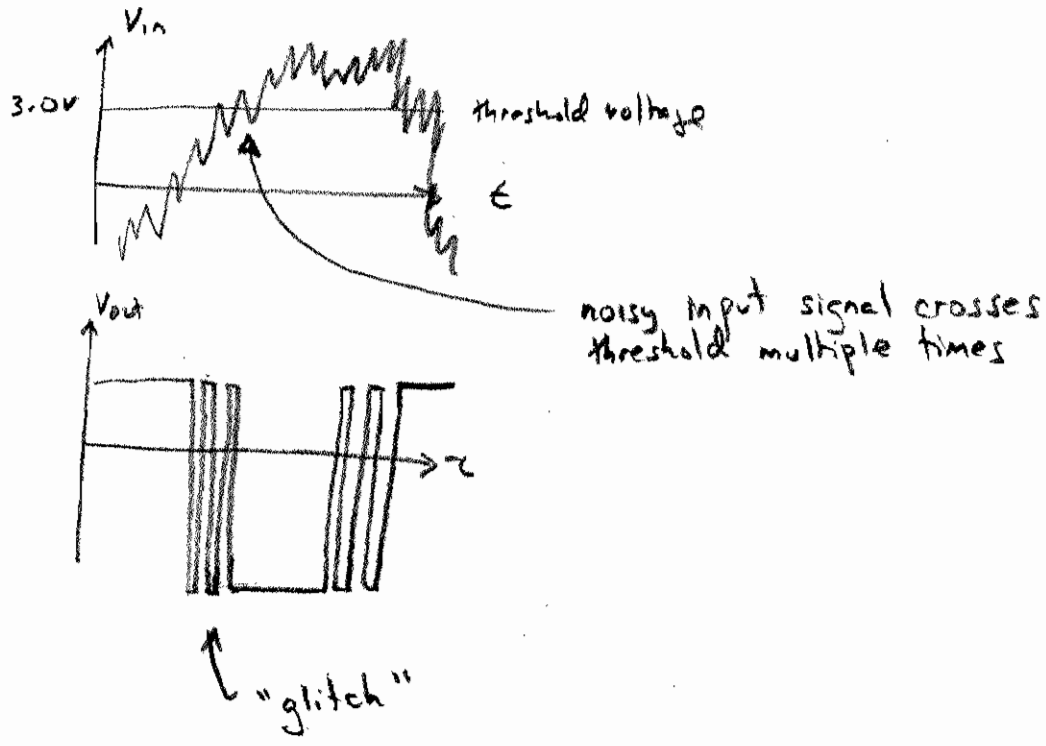 Vin
3.0V
threshold voltage
t
noisy input signal crosses
threshold multiple times
Vout
t
"glitch"